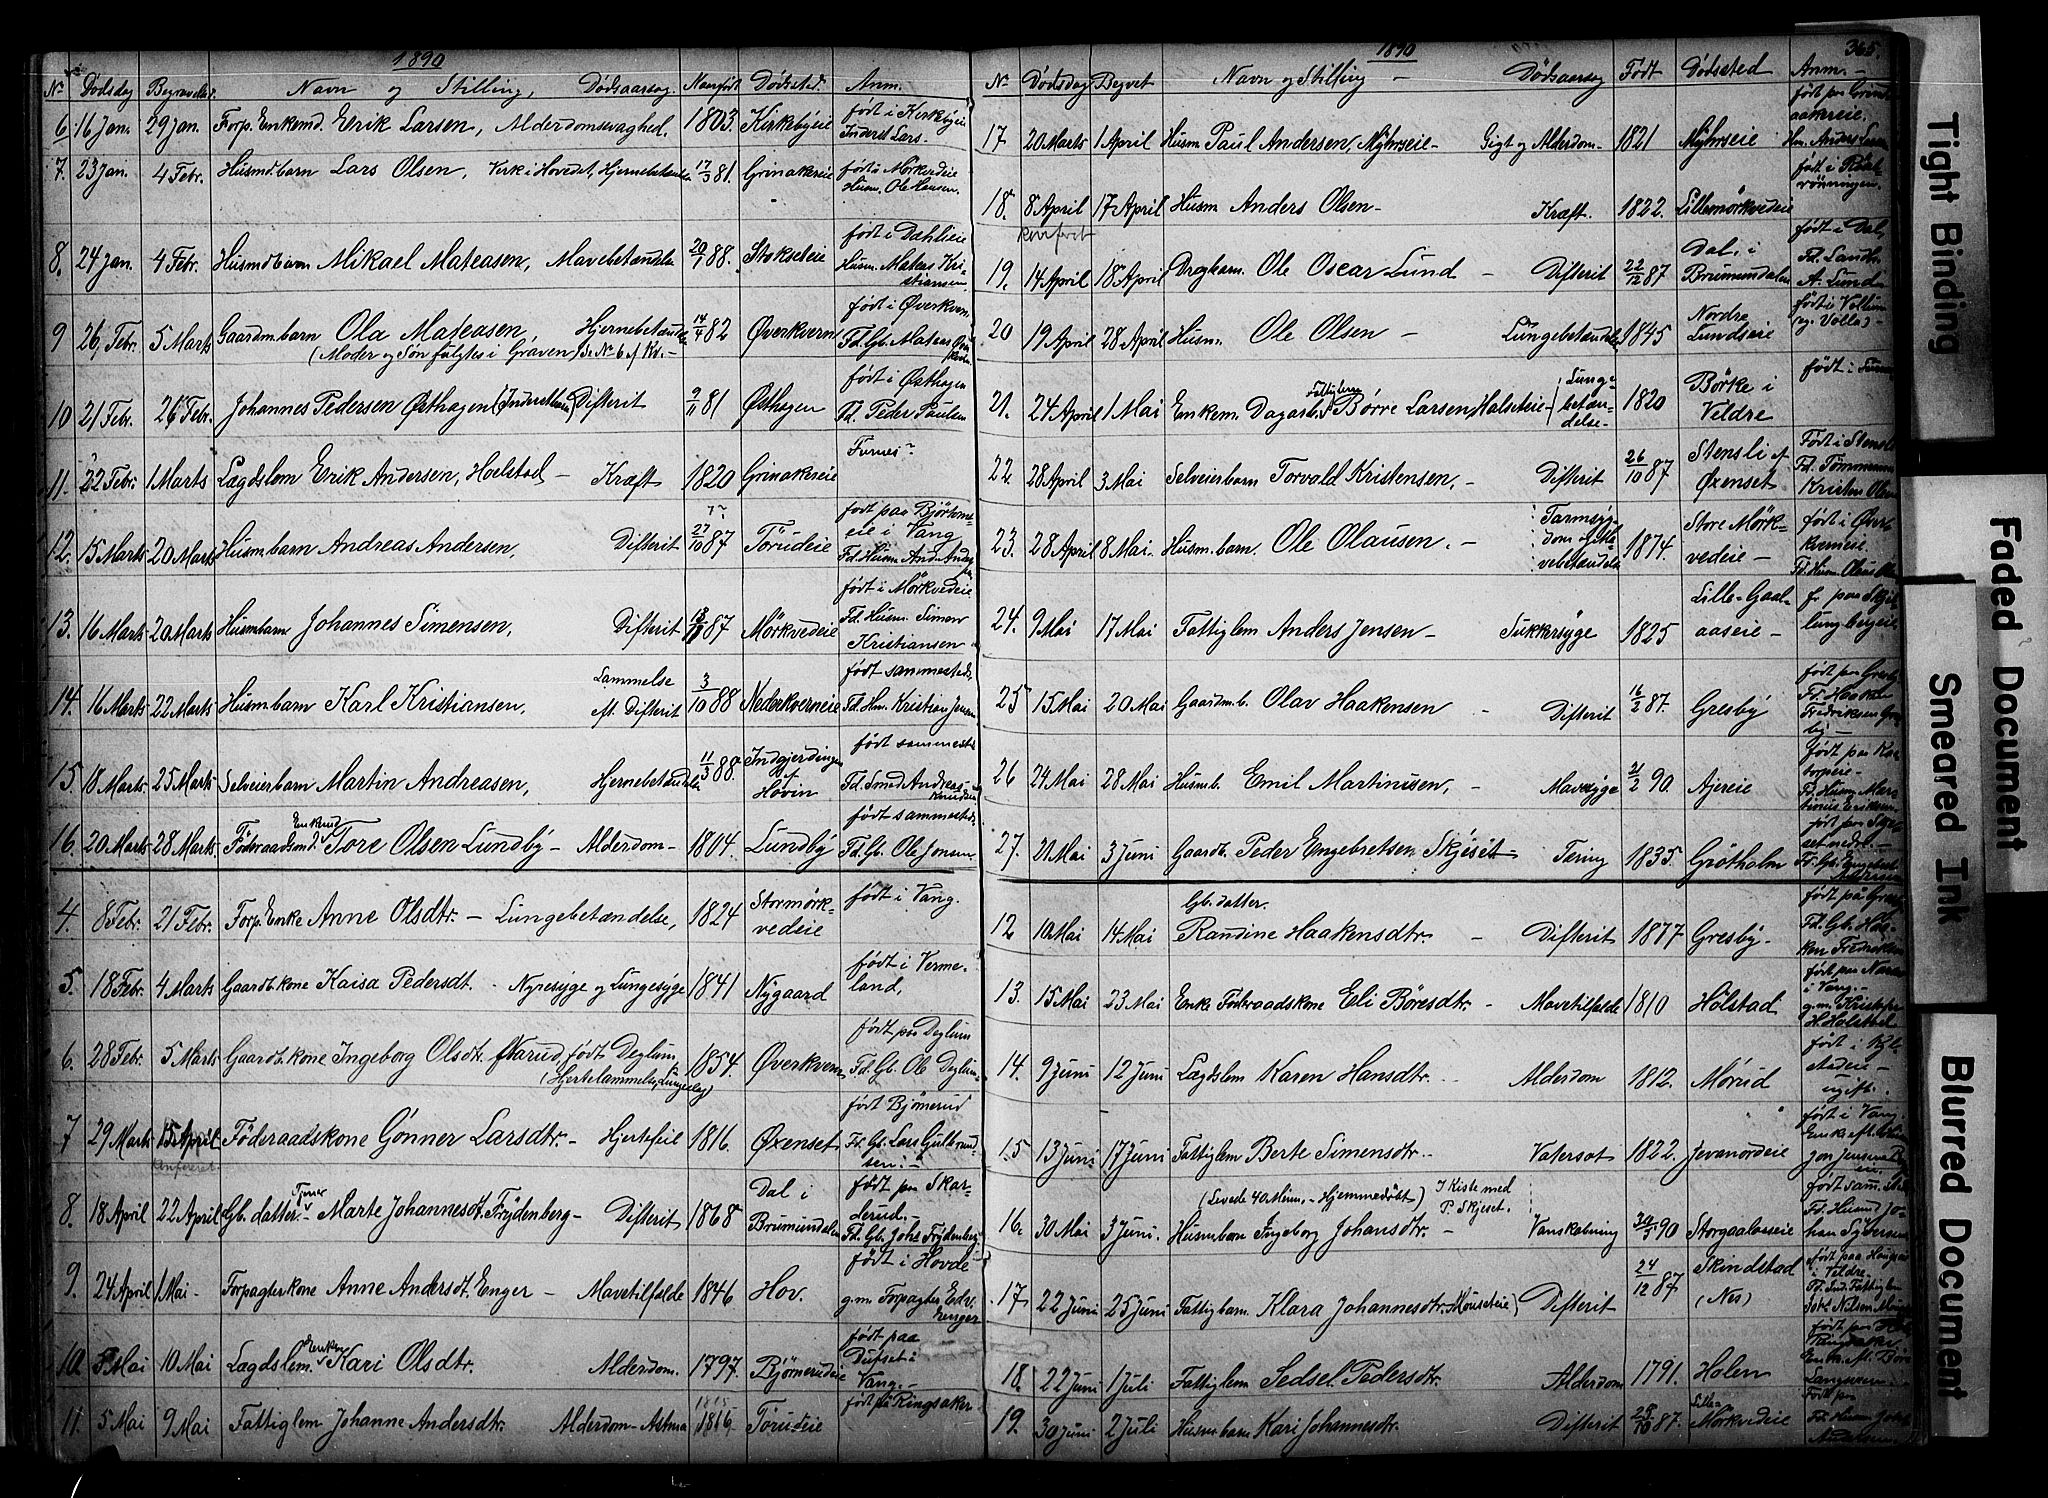 1890
No Dødsdag Begravelsesd. Navn og Stilling, Dødsaarsag. Naarfødt Dødssted. Anm.
6 16 Jan. 29 Jan. Forp. Enkemd. Erik Larsen, Alderdomsvaghed. 1803 Kirkebyeie født i Kirkebyeie
Inderst Lars.
7. 23 Jan. 4 Febr. Husmd.barn Lars Olsen, Verk i Hovedet, Hjernebetændelse 17/3 81. Grinakereie født i Mörkvedeie
Husm. Ole Hansen.
8. 24 Jan. 4 Febr. Husmd barn Mikael Mateasen, Mavebetændelse 20/1 88. Stokseteie født i Dæhlieie
Husm. Mateas Kri-
stiansen
9 26 Febr. 5 Marts Gaardm.barn Ola Mateasen, Hjernebetændelse 14/4 82 Øverkvern født i Øverkvern
(Moder og Sön fulgtes i Graven) Se No 6 af Kv. Fd. Gb. Mateas
10 21 Febr. 26 Febr. Johannes Pedersen Østhagen (Inderstbarn) Difterit 9/11 81 Østhagen født i Østhagen
Fd. Peder Paulsen
11. 22 Febr. 1 Marts Lægdslem Erik Andersen, Hoelstad Kræft 1820 Grinakereie Furnes
12. 15 Marts 20 Marts Husm.barn Andreas Andersen, Difterit 27/10 87 Törudeie født paa Björtom-
eie i Vang
Fd. Husm. And.
13. 16 Marts 20 Marts Husmbarn Johannes Simensen, Difterit 87 Mörkvedeie født i Mörkvedeie
Fd. Husm. Simen
Kristiansen
14. 16 Marts 22 Marts Husmbarn Karl Kristiansen, Lammelse
eft. Difterit 3/10 88 Nederkverneie født sammesteds,
Fd. Hm. Kristian Jensen
15. 18 Marts 25 Marts Selveierbarn Martin Andreasen, Hjernebetændelse 11/3 88. Indgjerdingen
af
Hovin født sammesteds
Fd. Smed Andreas
Knudsen
16. 20 Marts 28 Marts. Föderaadsmd. Enkemd. Tore Olsen Lundby Alderdom 1804. Lundby født sammesteds.
Fd. Gb. Ole Jonsen
4. 8 Febr. 21 Febr. Forp. Enke Anne Olsdtr. Lungebetændelse, 1824 Stormörk-
vedeie født i Vang.
5. 18 Febr. 4 Marts Gaardb.kone Kaisa Pedersdt. Nyresyge og Lungesyge 1841 Nygaard født i Verme-
land,
6. 28 Febr. 5 Marts Gaardb.kone Ingeborg Olsdtr. Narud, født Deglum, 1854. Øverkvern født paa Deglum
(Hjertelammelse, Lungesyg) Fd. Gb. Ole Deglum
7 29 Marts 15 April Föderaadskone Gönner Larsdtr. Hjertefeil 1816. Øxenset født Bjömerud
konfereret Fd. Gb. Lars Gulbrand-
sen.
8. 18 April 22 April Gb. datter Tjener Marte Johannesdt. Frydenberg Difterit 1868 Dal i
Brumundalen født paa Skar-
derud.
Fd. Gb. Johs. Frydenberg
9. 24 April 1 Mai Forpagterkone Anne Andersdt. Enger Mavetilfælde 1846 Hov. født i Hovde
g.m. Forpagter Edv.
Enger
10. 5 Mai 10 Mai Lægdslem. Enken Kari Olsdtr. Alderdom. 1797. Bjömerudeie født paa
Dufset i
Vang.
11. 5 Mai 9 Mai Fattiglem Johanne Andersdtr. Alderdom Astma 1815 1816 Törudeie født på Ringsaker
1890 365.
No Dødsdag Begvet Navn og Stilling Dødsaarsag Født Dødssted Anm.
17. 20 Marts 1 April Husm Paul Andersen, Myhrseie Gigt og Alderdom 1821 Myhrseie født paa Grin-
aakreie.
18. 8 April 17 April Husm Anders Olsen Kræft. 1822. Lillemörkvedeie født i
rönningen.
konferet
19. 14 April 18 April Dragbarn. Ole Oscar Lund Difterit 22/12 87 Dal, i
Brumundalen født i Dal,
Fd. Landh.
A. Lund
20 19 April 28 April Husm. Ole Olsen Lungebetændelse 1845 Nordre
Lundseie født i Vollum
(og Volla)
21. 24 April 1 Mai Enkem. Dagarb. Fattiglem Börre Larsen, Halseteie Lunge-
betæn-
delse 1820 Börke i
Veldre født i Furnes
22. 28 April 3 Mai Selveierbarn Torvald Kristensen, Difterit 26/10 87 Stensli af
Øxenset Født i Stensli
Fd. Tömmermand
Kristen Olsen
23. 28 April 8 Mai. Husm.barn. Ole Olausen. Tarmsyg-
dom og Ma-
vebetændelse 1874 Store Mörk-
vedeie født i Øver-
kverneie.
Fd. Husm. Olaus
24. 9 Mai 17 Mai Fattiglem Anders Jensen Sukkersyge 1825 Lille-Gaal-
aaseie f. paa Skjel-
lungbergeie
25 15 Mai 20 Mai Gaardm.b. Olav Haakensen Difterit 16/2 87. Gresby født paa Gresby
Fd. Haaken
Fredriksen Gres-
by
26 24 Mai 28 Mai Husm.b. Emil Martinusen, Mavesyge 21/2 90. Ajereie født paa Kas-
torpeie
Fd. Husm. Mar-
tinus
27. 21 Mai 3 Juni Gaardb. Peder Engebretsen Skjeset Tæring 1835. Gröthalm født paa Skje-
set nedre.
Fd. Gb. Engebret
12 10 Mai 14 Mai Gb. datter.
Randine Haakensdtr. Difterit 1877 Gresby. født på Gresby
Fd. Gb. Haa-
ken Fredriksen
13. 15 Mai 23 Mai Enke Föderaadskone Eli Börresdtr. Mavetilfælde 1810 Hölstad født paa
i Vang.
g.m. Kristofer
H. Holstad
14. 9 Juni 12 Juni Lægdslem Karen Hansdtr. Alderdom 1812. Mörud født i
ugift.
15 13 Juni 17 Juni Fattiglem Berte Simensdtr. Vatersot 1822. Jevanordeie født i Vang.
Enke eft. Husm
Jon Jensen
(Levede 40 Min. Hjemmedöbt) I Kiste med
P. Skjeset.
16. 30 Mai 3 Juni. Husmbarn Ingeborg Johansdtr. Vanskabning 30/5 90 Storgaalaaseie født samm.steds
Fd. Husmd Jo-
han Syversen
17 22 Juni 25 Juni Fattigbarn. Klara Johannesdtr. (Mouseteie) Difterit 24/12 87 Skindstad
(Nes) født paa
i Veldre.
Fd. Ind. Fattiglem
Johs. Nilsen
18. 22 Juni 1 Juli Fattiglem Sedsel Pedersdtr. Alderdom 1791. Holen født paa
Ringsaker
Enke eft. Börre
19. 30 Juni 2 Juli Husmbarn Kari Johannesdtr. Difterit 25/10 87. Lille-
Mörkvedeie Född paa
Fd. Husm. Johs.
Tight Binding
Faded Document
Smeared Ink
Blurred Document